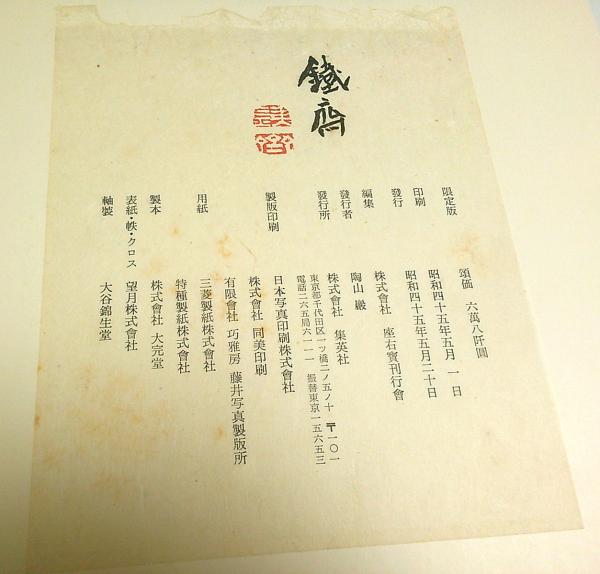 鐵齋
限定版 頒価 六萬八阡圓
印刷 昭和四十五年五月 一日
發行 昭和四十五年五月二十日
編集 株式會社 座右寶刊行會
發行者 陶山 巖
發行所 株式會社 集英社
東京都千代田区一ッ橋二ノ五ノ十 〒一〇一
電話二六五局六一一一 振替東京一五六五三
製版印刷 日本写真印刷株式會社
株式會社 同美印刷
有限會社 巧雅房 藤井写真製版所
用紙 三菱製紙株式會社
特種製紙株式會社
製本 株式會社 大完堂
表紙・帙・クロス 望月株式會社
軸装 大谷錦生堂